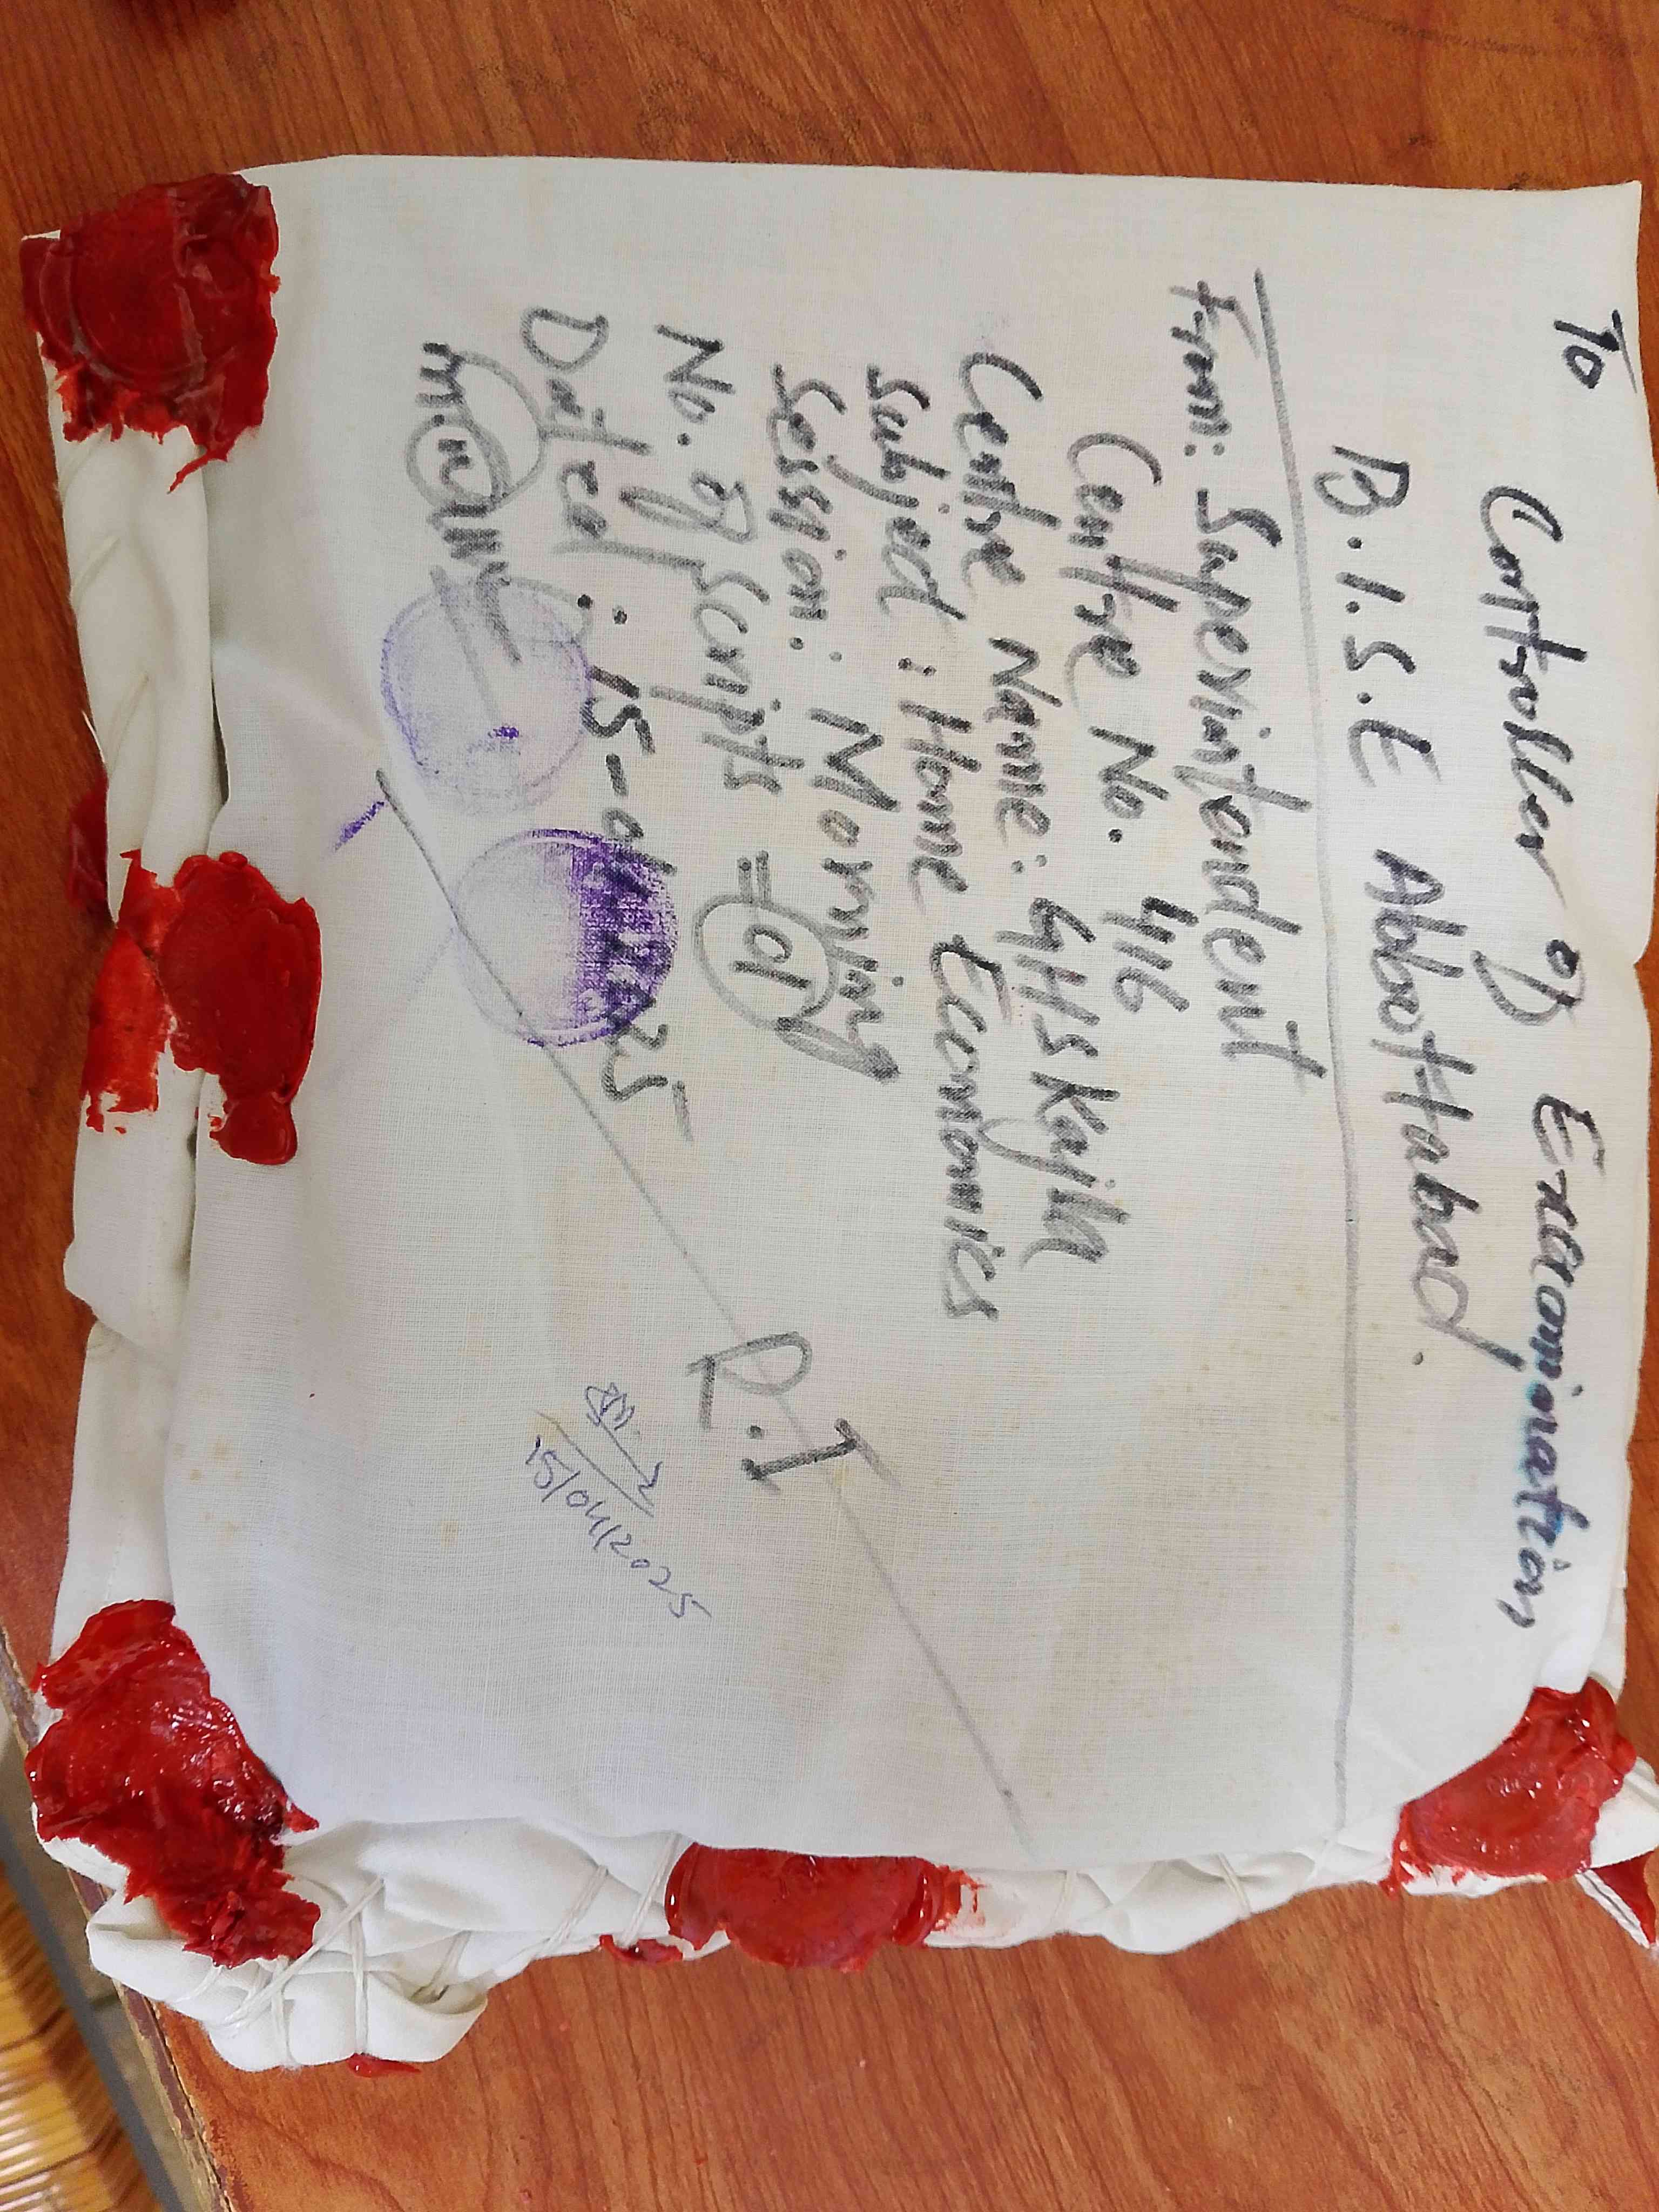 To
Conttroller of Extaomination,
B.I.S.E Abbottabad.
From: Supervintendent
Centtre No. 416
Centre Name: GHS Kajlla
Subject: Home Economics
Session: Morning
No. of scripts = 01
Dated: 15-04-2025
P.T
15/04/2025